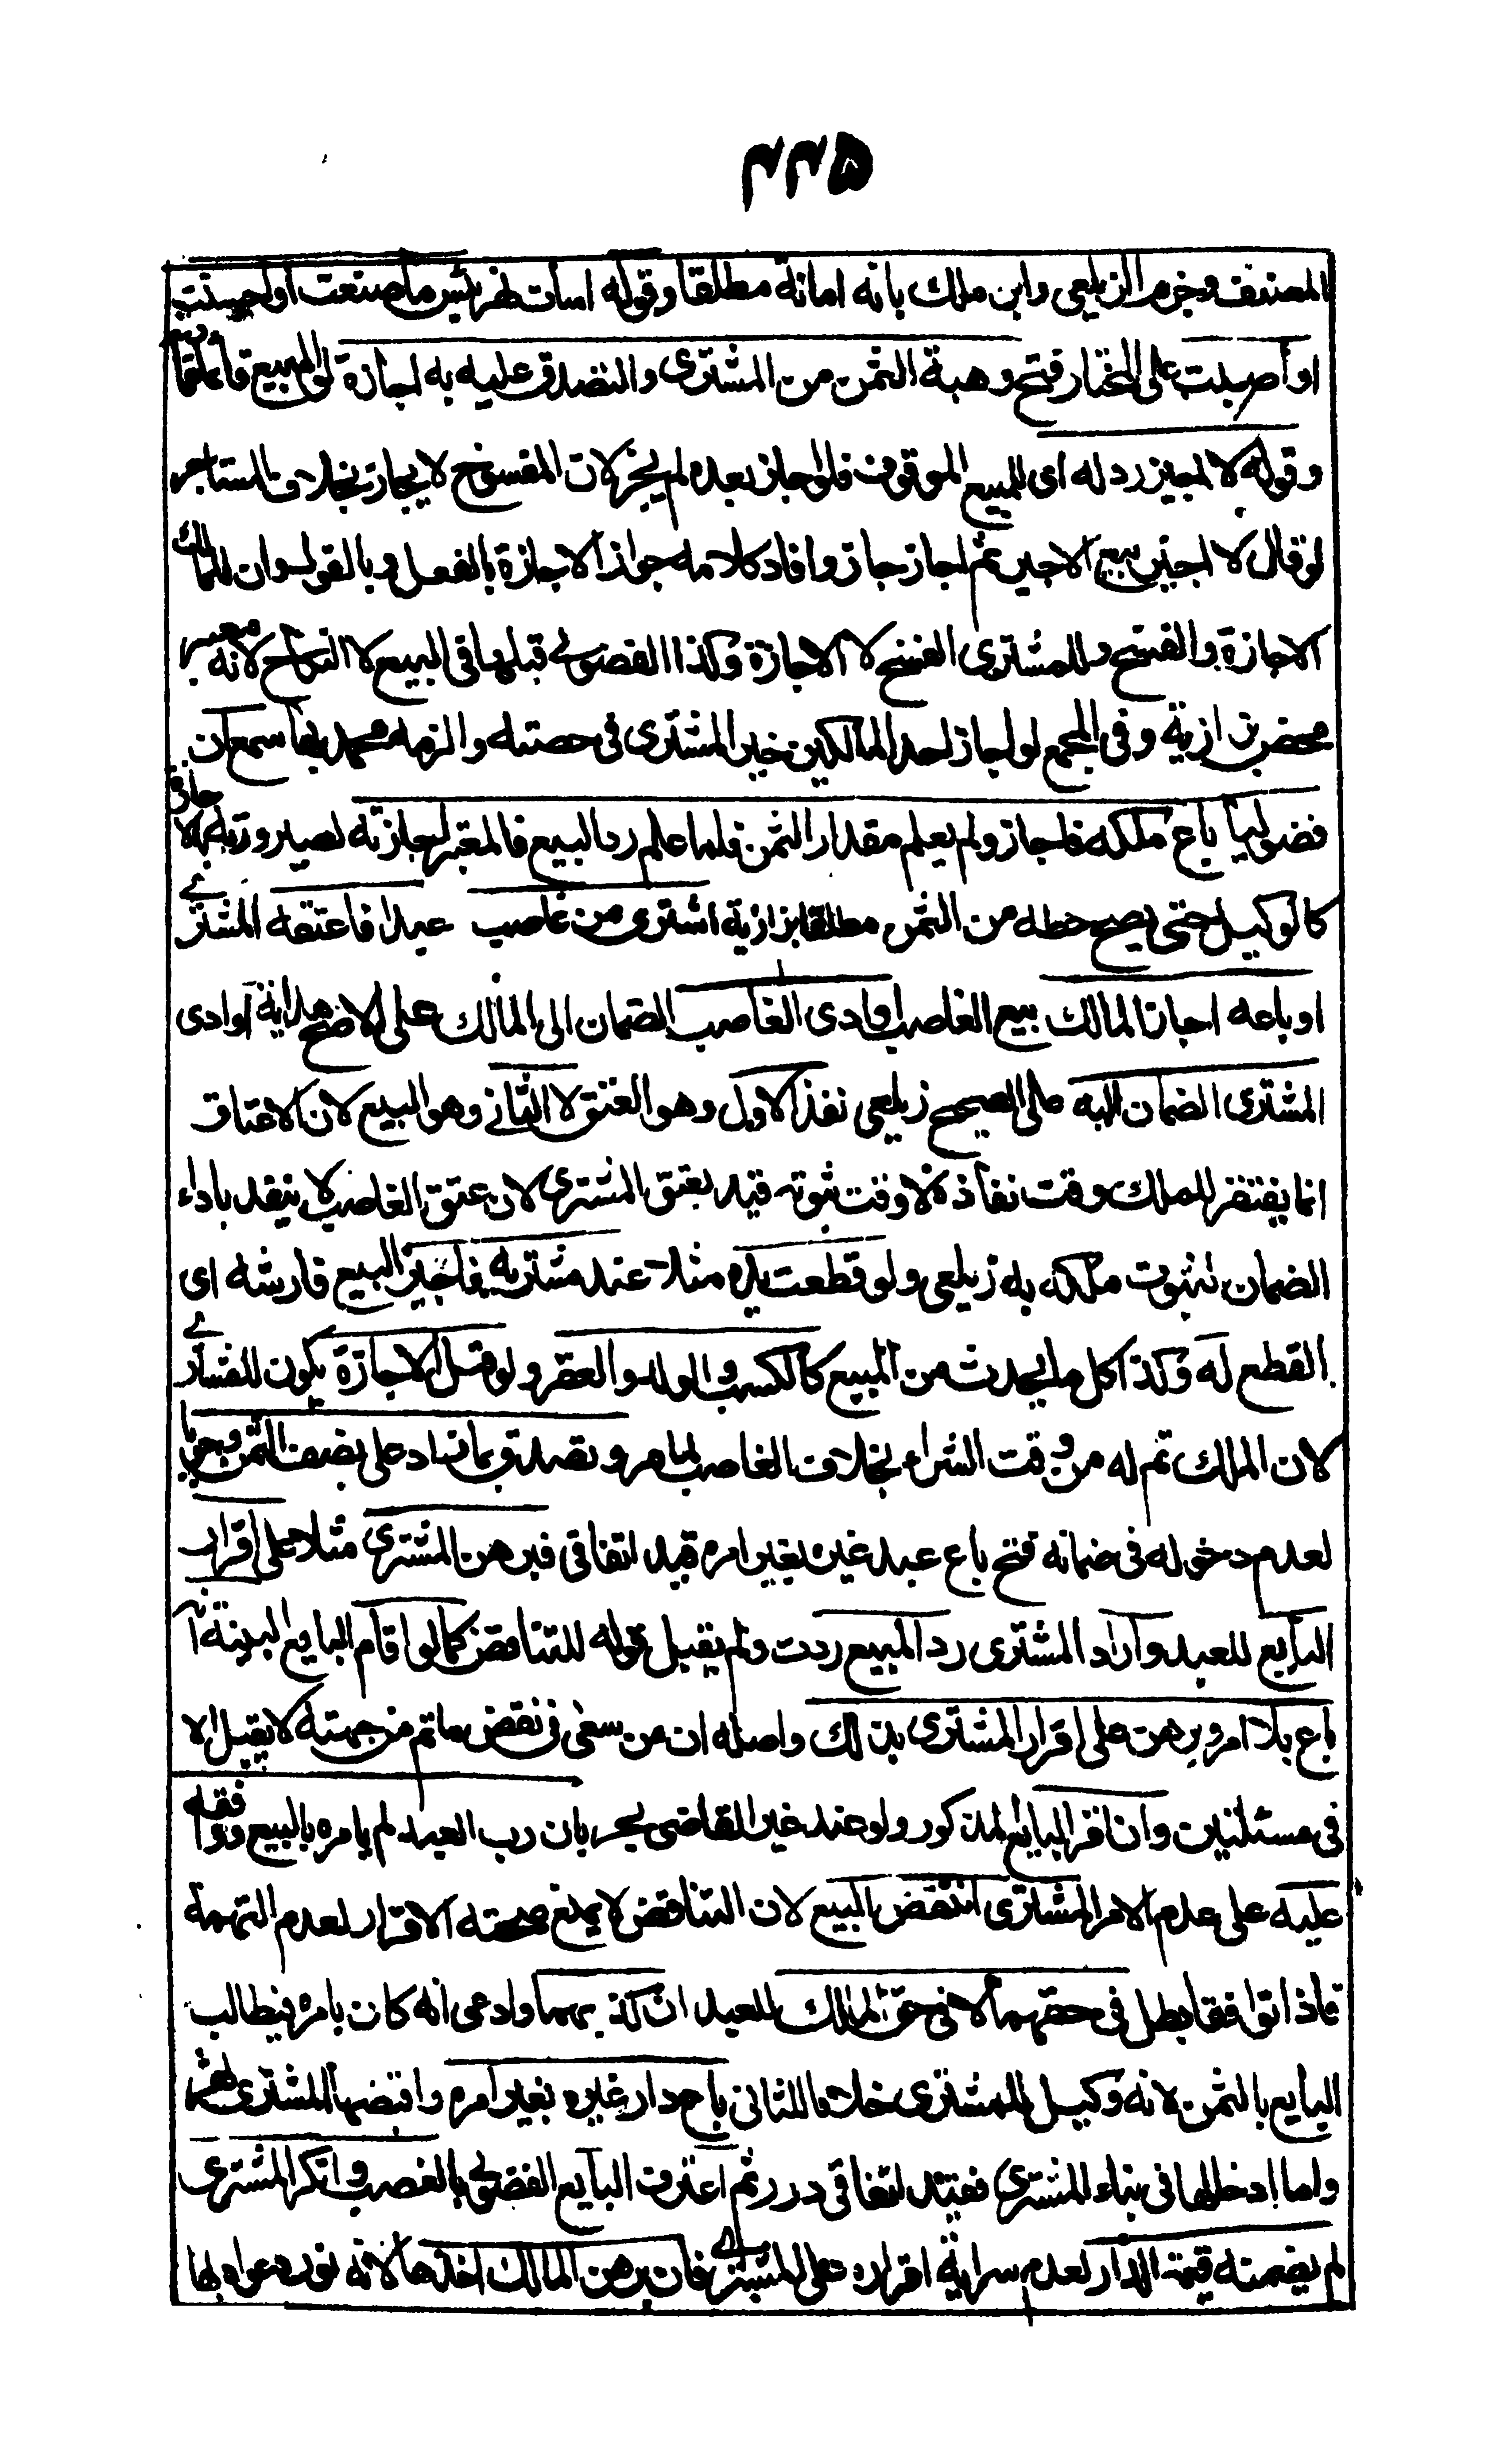 ٢٢٥
المصنف وجزم الزيلعي وابن ملك بانه امانة مطلقا وقوله اسأت نهر بئس ما صنعت او احسنت
او اصبت على المختار فتح وهبة الثمن من المشترى والتصدق عليه به اجازة لو المبيع قائما
وقوله لا اجيز رد له اى للبيع الموقوف فلو اجازه بعده لم يجز لان المفسوخ لا يجاز بخلاف المستاجر
لو قال لا اجيز بيع الاجير ثم اجاز جاز وافاد كلامه جواز الاجازة بالفعل وبالقول وان للمالك
الاجازة والفسخ وللمشترى الفسخ لا الاجازة وكذا الفضولى قبلها فى البيع لا النكاح لانه معبر
محض بزازية وفى المجمع لو اجاز احد المالكين خير المشترى فى حصته والزمه محمد بها سمع ان
فضوليا باع ملكه فاجاز ولم يعلم مقدار الثمن فلما علم رد البيع فالمعتبر اجازته لصيرورته بها
كالوكيل حتى يصح حطه من الثمن مطلقا بزازية اشترى من غاصب عبدا فاعتقه المشترى
او باعه اجاز المالك بيع الغاصب او ادى الغاصب الضمان الى المالك على الاصح هداية او ادى
المشترى الضمان اليه على الصحيح زيلعي نفذ الاول وهو العتق لا الثانى وهو البيع لان الاعتاق
انما يفتقر للملك وقت نفاذه لا وقت ثبوته قيد بعتق المشترى لان عتق الغاصب لا ينفذ باداء
الضمان لثبوت ملكه به زيلعي ولو قطعت يده مثلا عند مشتريه فاجيز البيع فارشه اى
القطع له وكذا كل ما يحدث من المبيع كالكسب والولد والعقر ولو قبل الاجازة يكون للمشترى
لان الملك تم له من وقت الشراء بخلاف الغاصب لما مر وتصدق بما زاد على نصف الثمن وجوبا
لعدم دخوله فى ضمانه فتح باع عبد غيره بغير امره قيد اتفاقى فبرهن المشترى مثلا على اقرار
البايع للعبد واراد المشترى رد المبيع ردت ولم يقبل قوله للتناقض كما لو اقام البايع البينة انه
باع بلا امر وبرهن على اقرار المشترى بذلك واصله ان من سعى فى نقض ما تم من جهته لا يقبل الا
فى مسئلتين وان اقر البايع المذكور ولو عند غير القاضى بحر بان رب العبد لم يامره بالبيع ووافقه
عليه على عدم الامر المشترى انتقض البيع لان التناقض لا يمنع صحة الاقرار لعدم التهمة
فاذا توافقا بطل فى حقهما لا فى حق المالك للعبد ان كذبهما وادعى انه كان بامره فيطالب
البايع بالثمن لانه وكيل للمشترى خلافا للثانى باع دار غيره بغير امره واقبضها المشترى نهر
واما ادخالها فى بناء المشترى فقيد اتفاقى درر ثم اعترف البايع الفضولى بالغصب وانكر المشترى
لم يضمنه قيمة الدار لعدم سراية اقراره على المشترى فان برهن المالك اخذها لانه نور دعواه بها